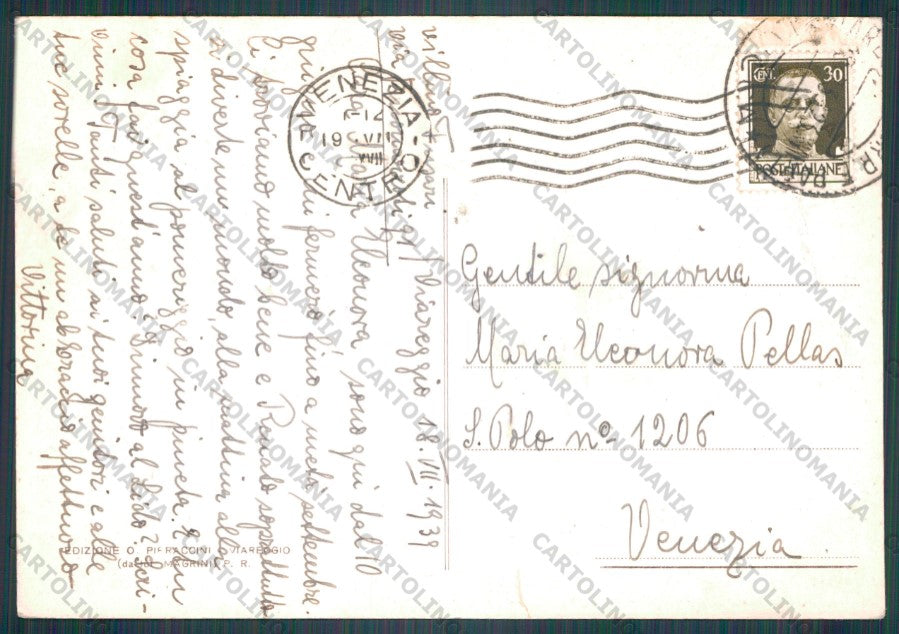 Viareggio 18.VII.1939
Cara Eleonora sono qui dal 10
giugno e mi fermerò fino a metà settembre.
Ci troviamo molto bene e Renato soprattutto
si diverte un mondo, alla mattina alla
spiaggia al pomeriggio in pineta. E tu
cosa fai quest'anno? Di nuovo al Lido? Scri-
vimi. Tanti saluti ai tuoi genitori e alle
tue sorelle, a te un abbraccio affettuoso
Vittorina
VENEZIA-CENTRO
19 VII
XVII
CENT. 30
POSTE ITALIANE
Gentile signorina
Maria Eleonora Pellas
S. Polo nº 1206
Venezia
EDIZIONE O. PIERACCINI VIAREGGIO
MAGRINI P. R.
CARTOLINOMANIA